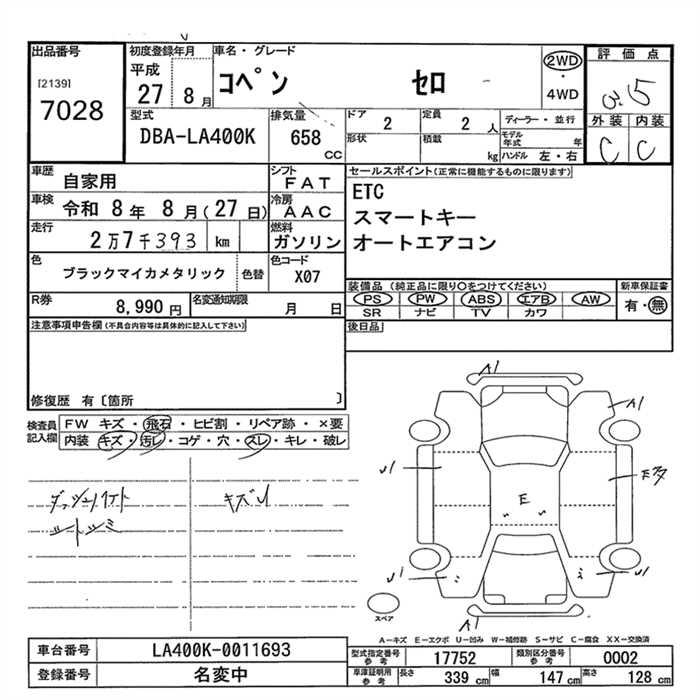 出品番号
[2139]
7028
初度登録年月
平成
27 8月
車名・グレード
コペン セロ
2WD
・
4WD
評価点
3.5
外装 内装
C C
型式
DBA-LA400K
排気量
658
CC
ドア
2
定員
2人
形状
積載
kg
ディーラー・並行
モデル年式 年
ハンドル 左・右
車歴
自家用
シフト
FAT
車検
令和 8年 8月(27日)
冷房
AAC
走行
2万7千393 km
燃料
ガソリン
色
ブラックマイカメタリック
色替
色コード
X07
R券
8,990円
名変通知期限
月 日
セールスポイント(正常に機能するものに限ります)
ETC
スマートキー
オートエアコン
装備品 (純正品に限り○をつけてください)
PS PW ABS エアB AW
SR ナビ TV カワ
新車保証書
有・無
後日品
注意事項申告欄(不具合内容等は具体的に記入して下さい)
修復歴 有〔箇所 〕
検査員記入欄
FW キズ・飛石・ヒビ割・リペア跡・×要
内装 キズ・汚レ・コゲ・穴・スレ・キレ・破レ
キズU
A1
A1
U1
E
U1
U1
A1
スペア
A―キズ E―エクボ U―凹み W―補修跡 S―サビ C―腐食 XX―交換済
車台番号
LA400K-0011693
登録番号
名変中
型式指定番号
参考
17752
類別区分番号
参考
0002
車庫証明用
参考
長さ 339cm
幅 147cm
高さ 128cm